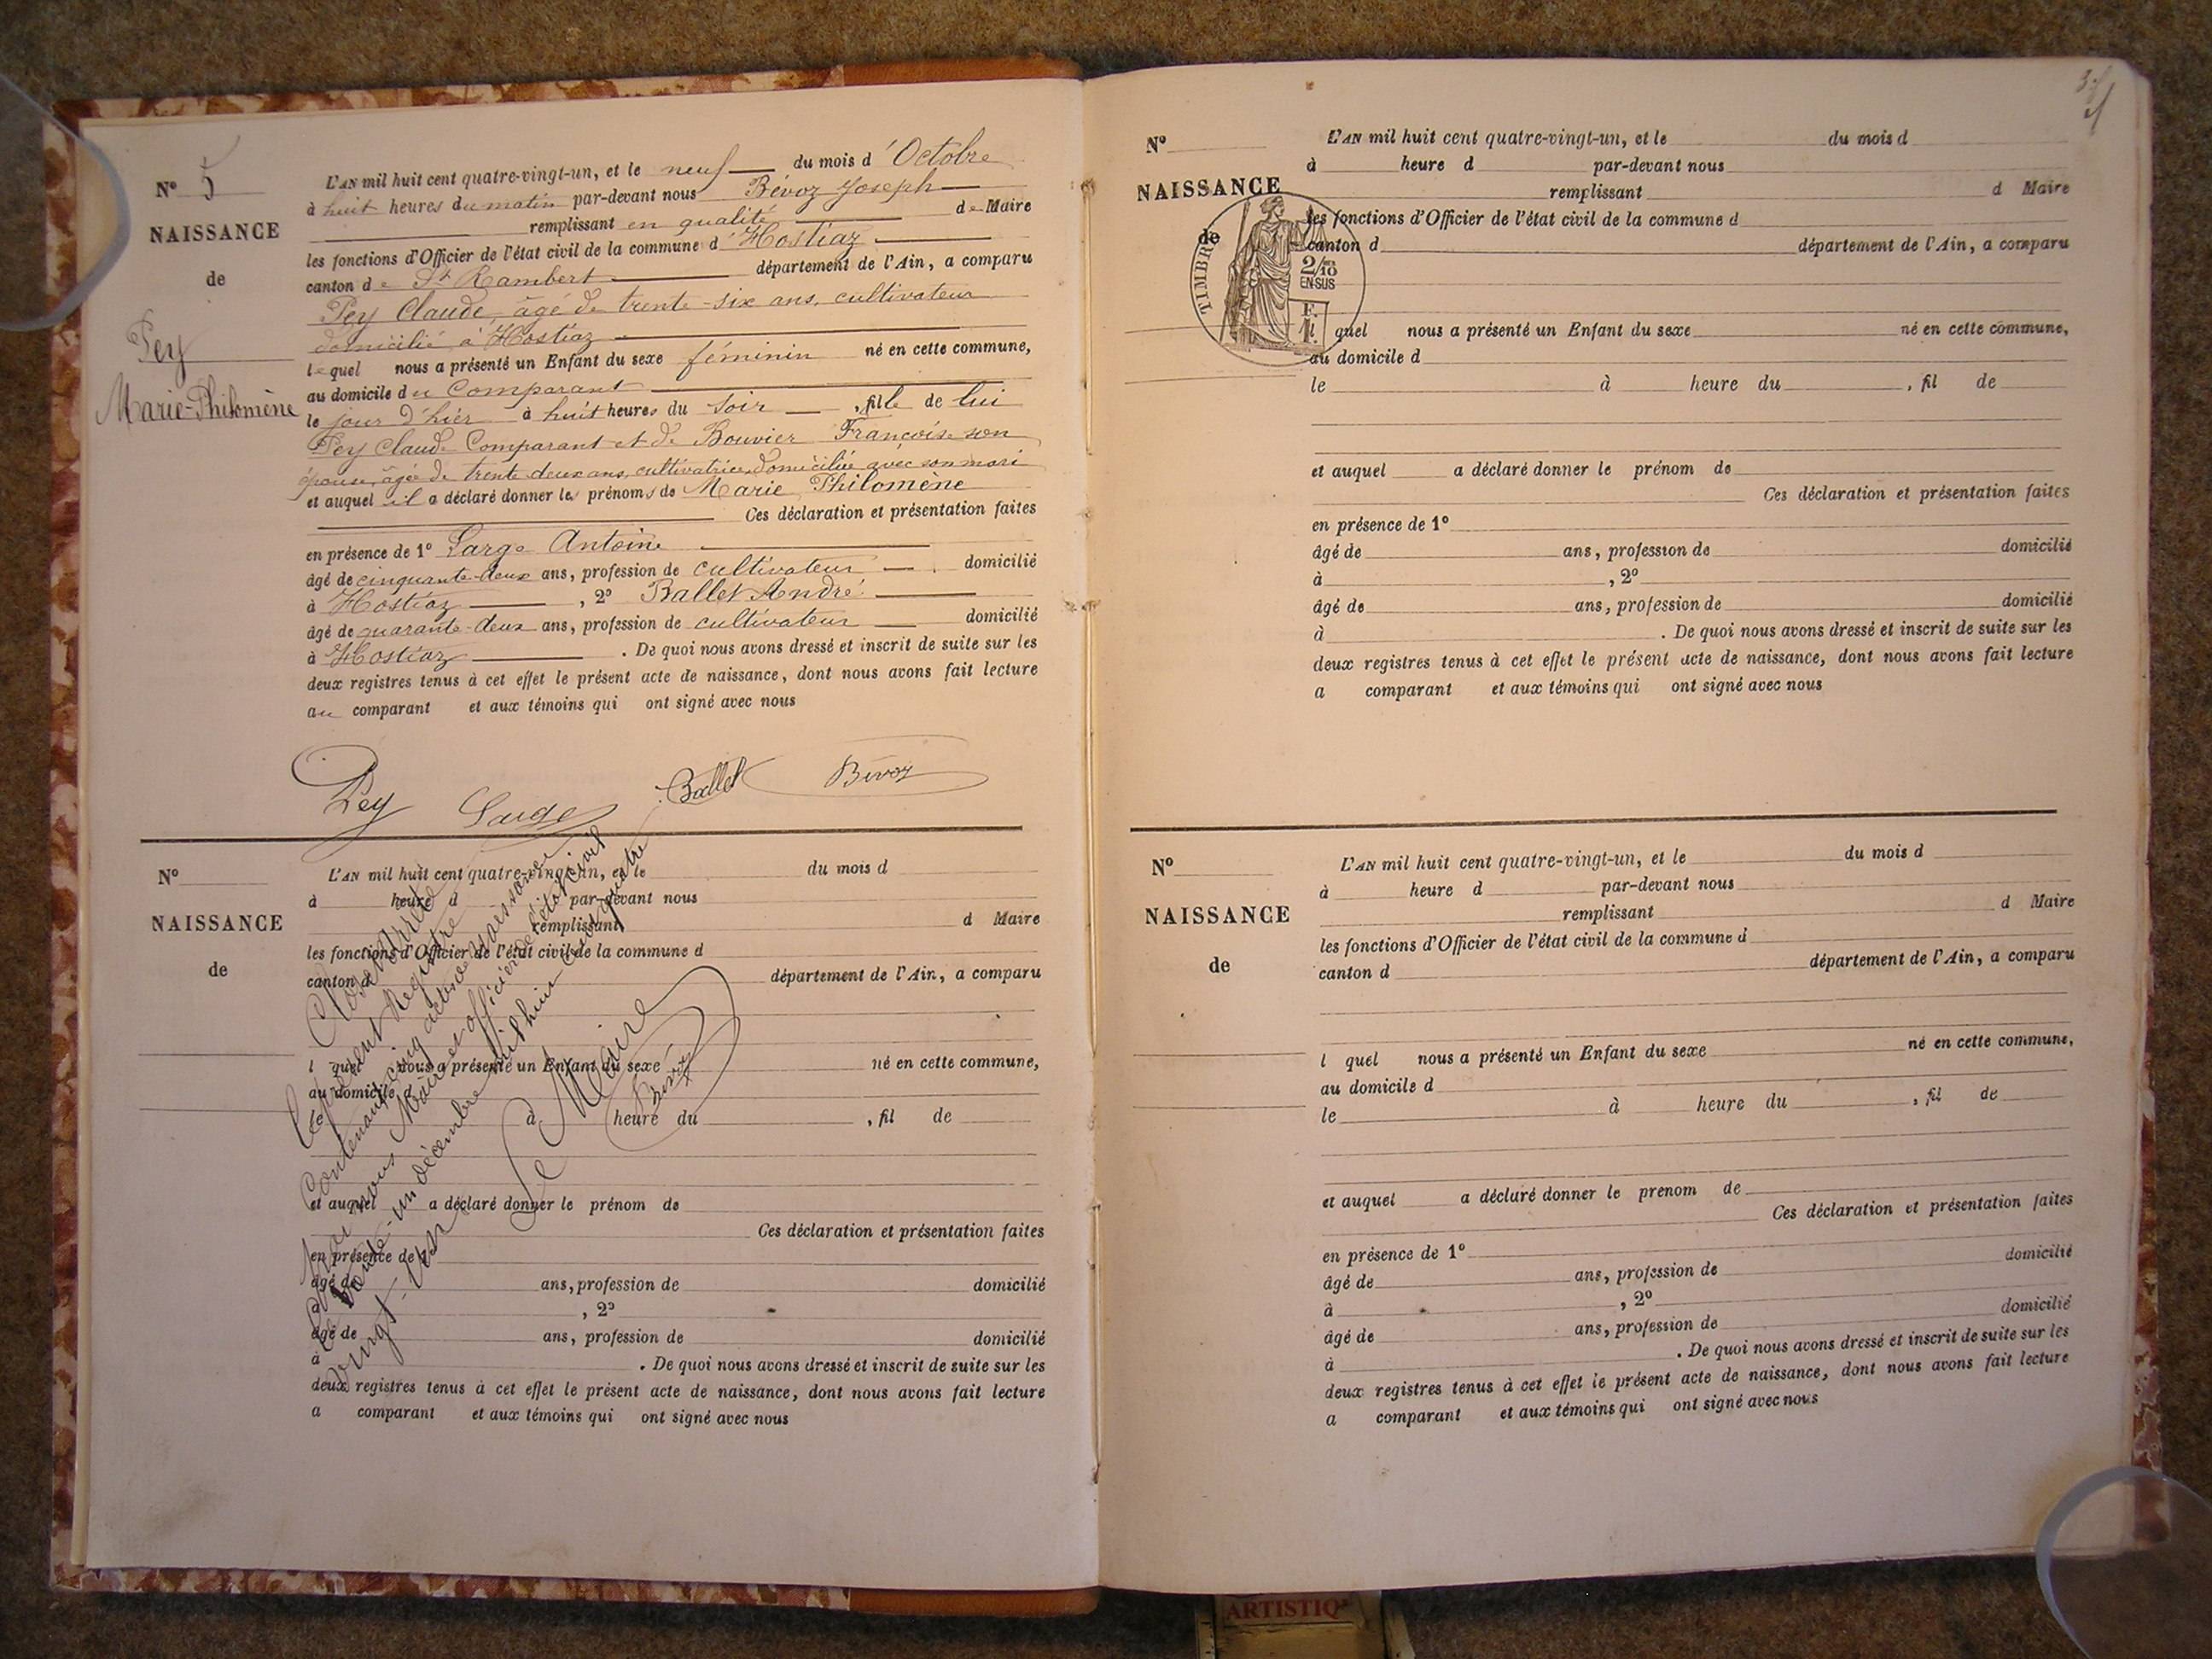 N° 5
NAISSANCE
de
Pey
Marie-Philomène
L'AN mil huit cent quatre-vingt-un, et le neuf du mois d'Octobre
à huit heures du matin par-devant nous Bévoz Joseph
remplissant en qualité de Maire
les fonctions d'Officier de l'état civil de la commune d'Hostiaz
canton de St Rambert département de l'Ain, a comparu
Pey Claude, âgé de trente-six ans, cultivateur
domicilié à Hostiaz
lequel nous a présenté un Enfant du sexe féminin né en cette commune,
au domicile du Comparant
le jour d'hier à huit heures du soir, fille de lui
Pey Claude Comparant et de Bouvier Françoise son
épouse, âgée de trente deux ans, cultivatrice, domiciliée avec son mari
et auquel il a déclaré donner les prénoms de Marie Philomène
Ces déclaration et présentation faites
en présence de 1° Large Antoine
âgé de cinquante-deux ans, profession de cultivateur domicilié
à Hostiaz, 2° Ballet André
âgé de quarante-deux ans, profession de cultivateur domicilié
à Hostiaz. De quoi nous avons dressé et inscrit de suite sur les
deux registres tenus à cet effet le présent acte de naissance, dont nous avons fait lecture
au comparant et aux témoins qui ont signé avec nous
Pey Large Ballet Bévoz
N°
NAISSANCE
de
L'AN mil huit cent quatre-vingt-un, et le du mois d
à heure d par-devant nous
remplissant d Maire
les fonctions d'Officier de l'état civil de la commune d
canton d département de l'Ain, a comparu
l quel nous a présenté un Enfant du sexe né en cette commune,
au domicile d
le à heure du , fil de
et auquel a déclaré donner le prénom de
Ces déclaration et présentation faites
en présence de 1°
âgé de ans, profession de domicilié
à , 2°
âgé de ans, profession de domicilié
à . De quoi nous avons dressé et inscrit de suite sur les
deux registres tenus à cet effet le présent acte de naissance, dont nous avons fait lecture
a comparant et aux témoins qui ont signé avec nous
Clos et arrêté
le présent Registre
Contenant cinq actes de naissance
par nous Maire et officier de l'état civil
le trente-un décembre mil huit cent quatre
vingt-un
Le Maire
Bévoz
N°
NAISSANCE
de
TIMBRE
2/10
EN SUS
L'AN mil huit cent quatre-vingt-un, et le du mois d
à heure d par-devant nous
remplissant d Maire
les fonctions d'Officier de l'état civil de la commune d
canton d département de l'Ain, a comparu
l quel nous a présenté un Enfant du sexe né en cette commune,
au domicile d
le à heure du , fil de
et auquel a déclaré donner le prénom de
Ces déclaration et présentation faites
en présence de 1°
âgé de ans, profession de domicilié
à , 2°
âgé de ans, profession de domicilié
à . De quoi nous avons dressé et inscrit de suite sur les
deux registres tenus à cet effet le présent acte de naissance, dont nous avons fait lecture
a comparant et aux témoins qui ont signé avec nous
N°
NAISSANCE
de
L'AN mil huit cent quatre-vingt-un, et le du mois d
à heure d par-devant nous
remplissant d Maire
les fonctions d'Officier de l'état civil de la commune d
canton d département de l'Ain, a comparu
l quel nous a présenté un Enfant du sexe né en cette commune,
au domicile d
le à heure du , fil de
et auquel a déclaré donner le prenom de
Ces déclaration et présentation faites
en présence de 1°
âgé de ans, profession de domicilié
à , 2°
âgé de ans, profession de domicilié
à . De quoi nous avons dressé et inscrit de suite sur les
deux registres tenus à cet effet le présent acte de naissance, dont nous avons fait lecture
a comparant et aux témoins qui ont signé avec nous
ARTISTIQ